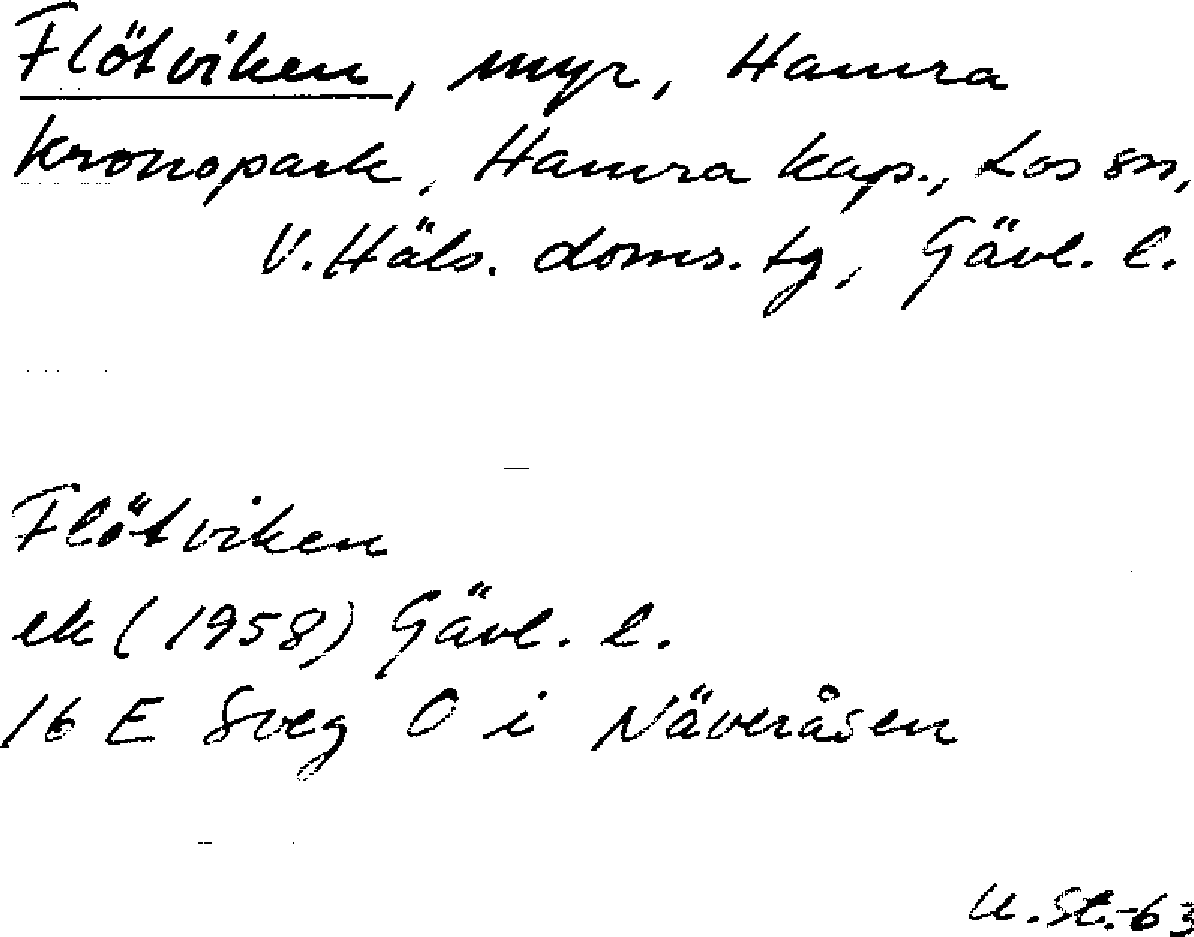 Flötviken, myr, Hamra
kronopark, Hamra kap., Los sn,
V. Häls. doms. tg, Gävl. l.
Flötviken
ek (1958) Gävl. l.
16 E Sveg O i Näveråsen
U. St.-63